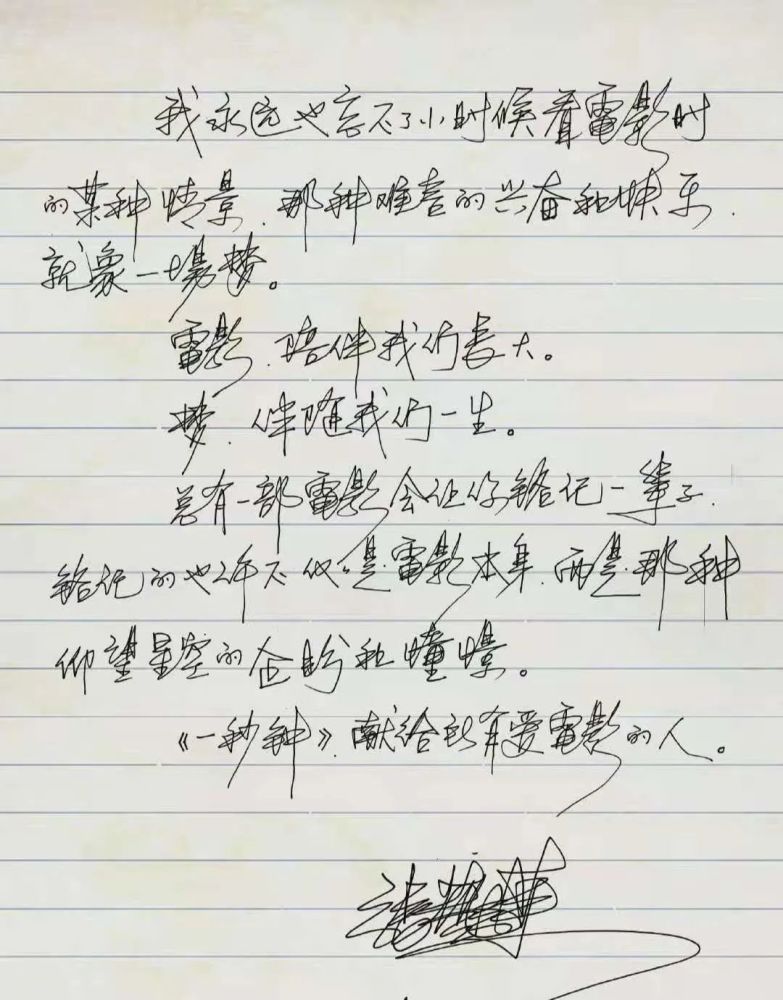 我永远也忘不了小时候看電影时
的某种情景，那种难言的兴奋和快乐，
就象一場梦。
電影，陪伴我们長大。
梦，伴随我们一生。
总有一部電影会让你铭记一輩子，
铭记的也许不仅仅是電影本身，而是那种
仰望星空的企盼和憧憬。
《一秒钟》，献给所有爱電影的人。